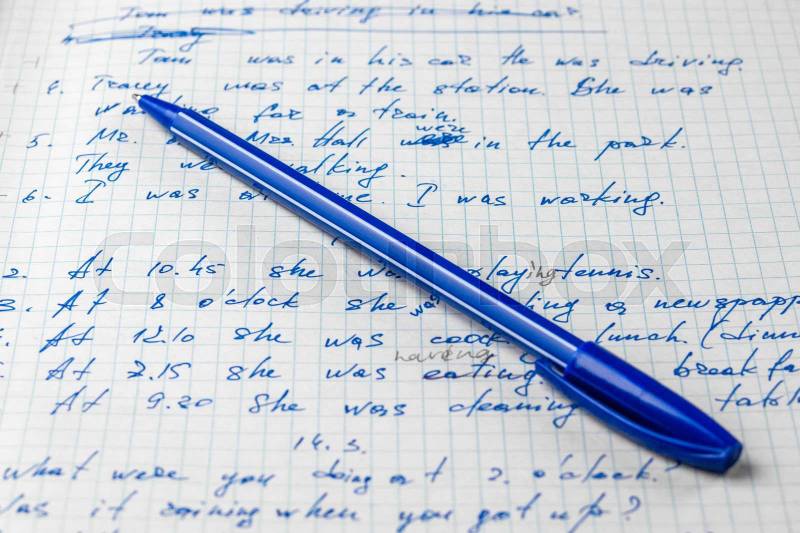 Tom was driving in his car.
Tracy
Tom was in his car He was driving.
4. Tracey was at the station. She was
for a train.
5. Mr. Mrs. Hall were in the park.
They walking.
6. I was I was working.
2. At 10.45 she playing tennis.
3. At 8 o'clock she was a newspape
At 12.10 she was cook lunch. (dinn
having
At 7.15 she was eating breakfa
At 9.20 She was cleaning table
14. 3.
what were you doing at 2. o'clock?
Was it raining when you got up?
colourbox